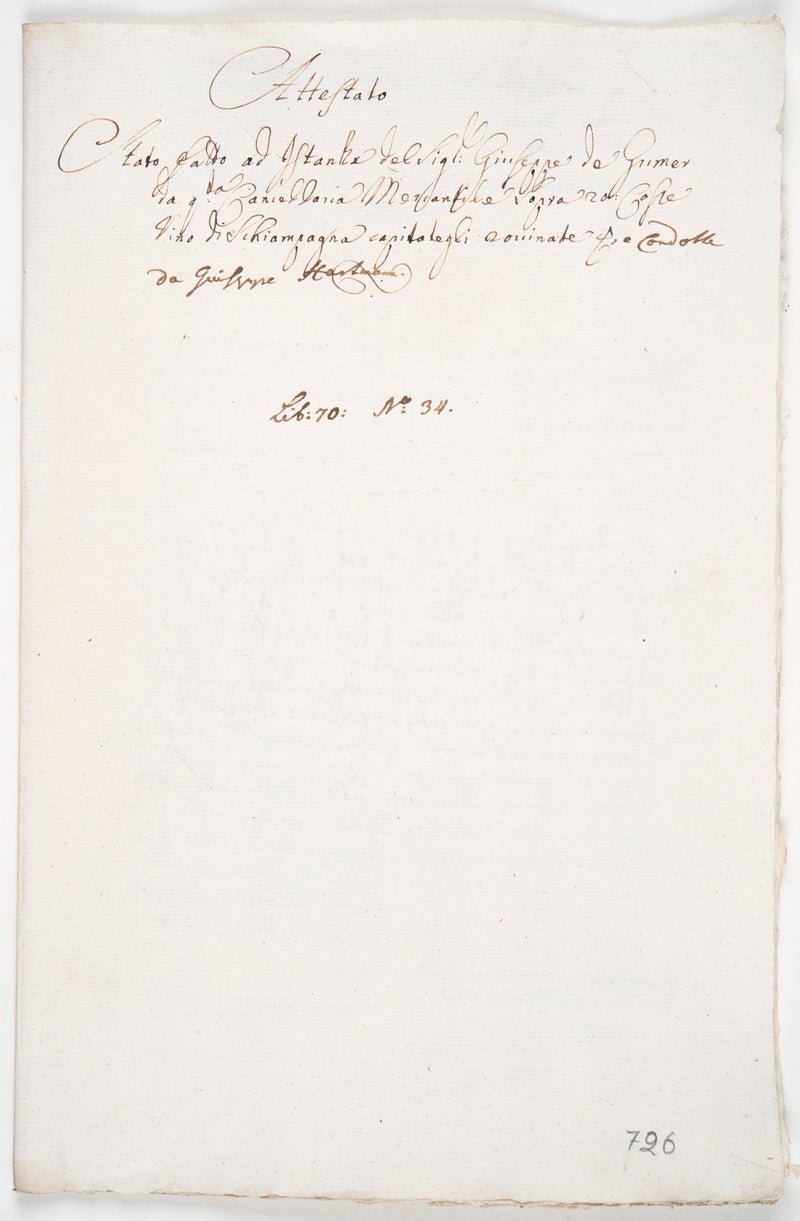 Attestato
Stato fatto ad Istanza del Sig:r Giuseppe de Gumer
da q:ta Cancellaria Mercantile sopra 20: Casse
Vino di Schiampagna capitategli rovinate e condotte
da Guiseppe Hartman
Lib: 70: No: 34.
726